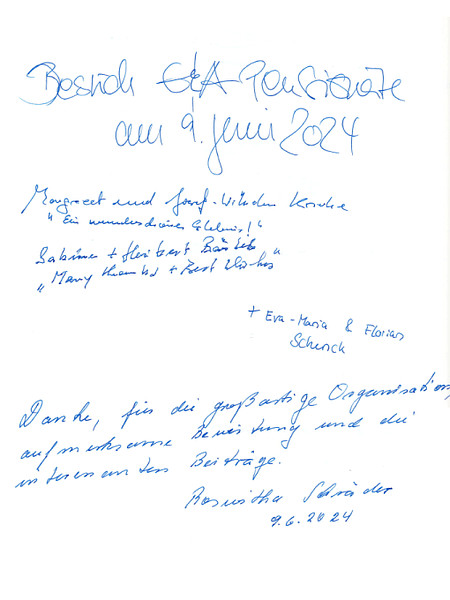 Besuch G&A Pensionäre
am 9. Juni 2024
Margreet und Josef-Wilhelm
"Ein wunderschönes Erlebnis!"
Sabine + Heribert
"Many thanks + Best Wishes"
+ Eva-Maria & Florian
Schenck
Danke, für die großartige Organisation,
aufmerksame Bewirtung und die
interessanten Beiträge.
Roswitha Schräder
9.6.2024